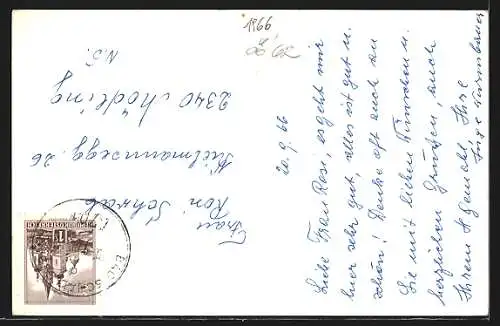 1966
20.9.66
Liebe Frau Rosi, es geht mir
hier sehr gut, alles ist gut u.
schön! Denke oft auch an
Sie mit lieben Wünschen u.
herzlichen Grüßen, auch
Ihrem H. Gemahl Ihre
Inge
Frau
Rosi Schwab
Kielmannsegg. 26
2340 Mödling
N.Ö.
REPUBLIK ÖSTERREICH